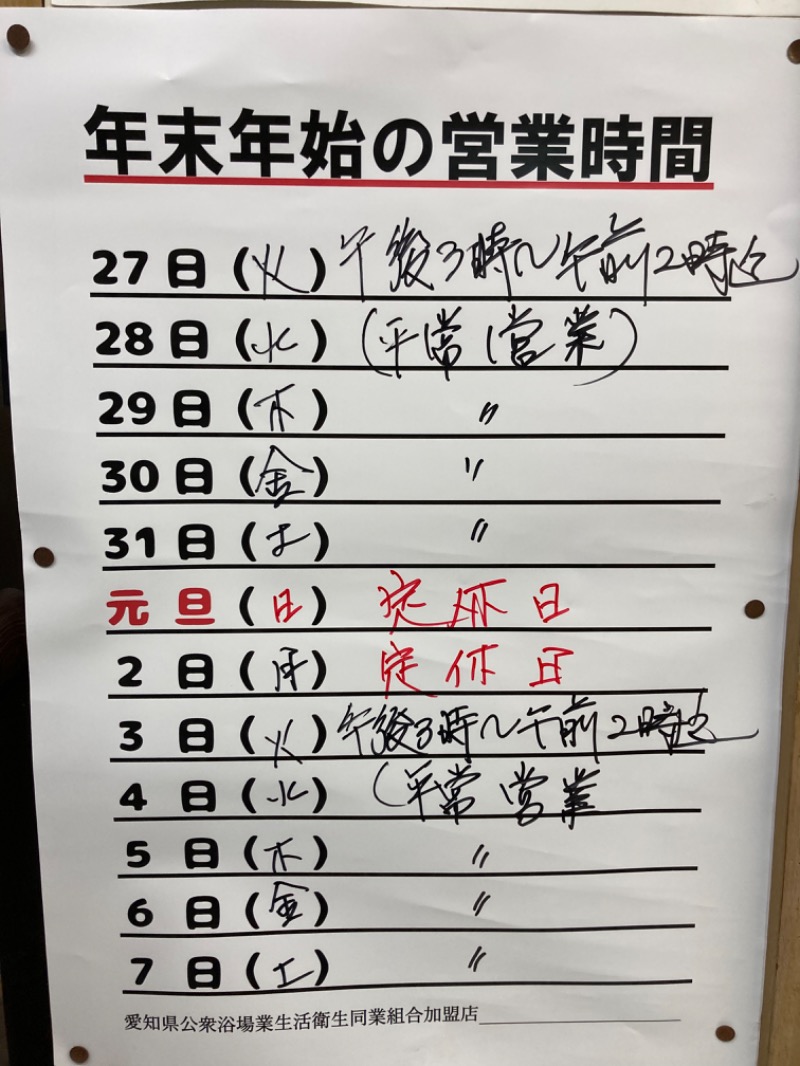 年末年始の営業時間
27日(火)午後3時~午前2時迄
28日(水)(平常営業)
29日(木) 〃
30日(金) 〃
31日(土) 〃
元旦(日) 定休日
2日(月) 定休日
3日(火)午後3時~午前2時迄
4日(水)(平常営業
5日(木) 〃
6日(金) 〃
7日(土) 〃
愛知県公衆浴場業生活衛生同業組合加盟店